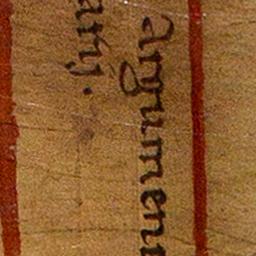 Argumen
arij.